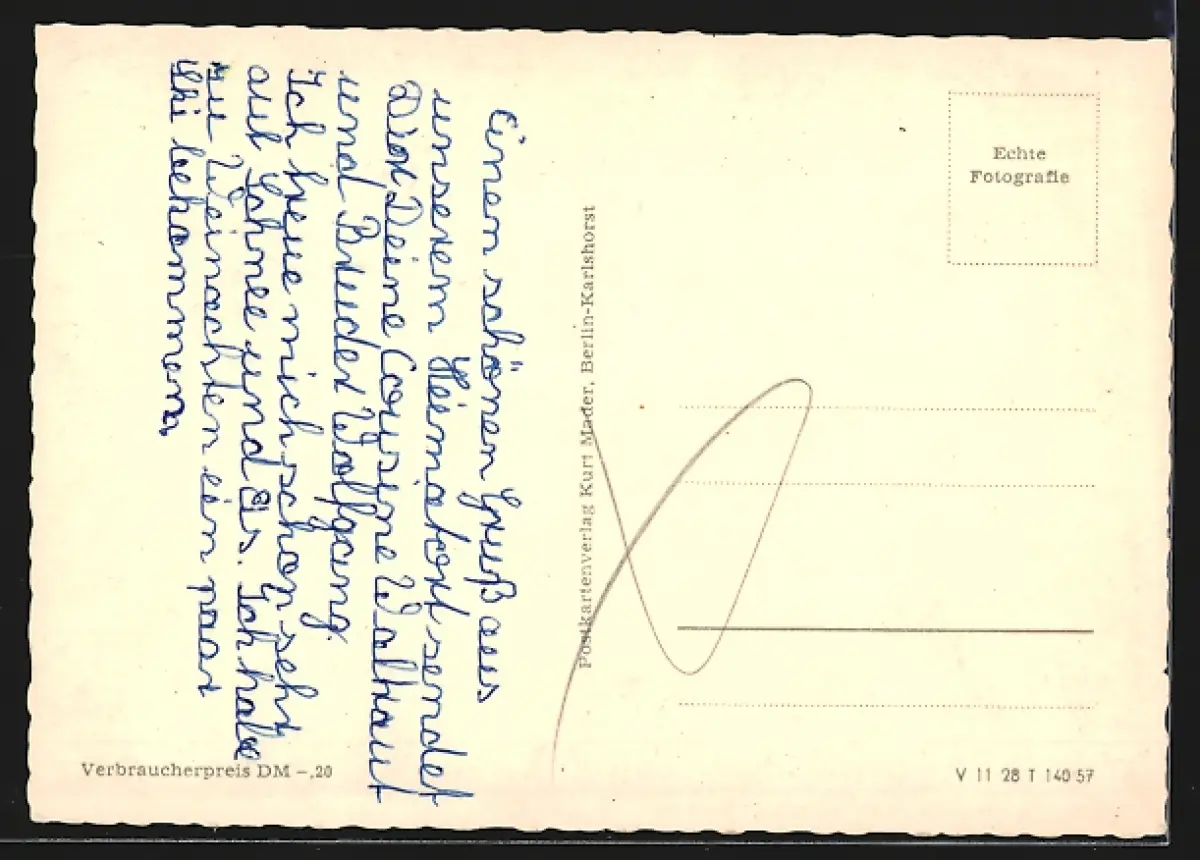 Einen schönen Gruß aus
unserem Heimatort sendet
Dir Deine Cousine Waltraut
und Bruder Wolfgang.
Ich freue mich schon sehr
auf Schnee und Eis. Ich habe
zu Weinachten ein paar
Ski bekommen.
Postkartenverlag Kurt Mader, Berlin-Karlshorst
Echte
Fotografie
Verbraucherpreis DM –,20
V 11 28 T 140 57